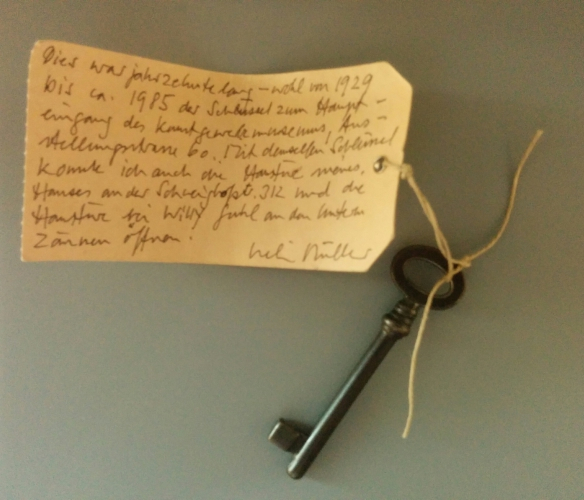 Dies war jahrzehntelang – wohl von 1929
bis ca. 1985 der Schlüssel zum Haupt-
eingang des Kunstgewerbemuseums, Aus-
stellungsstrasse 60. Mit demselben Schlüssel
konnte ich auch die Haustüre meines
Hauses an der Schweighofstr. 312 und die
Haustüre bei Willy Guhl an den Unteren
Zäunen öffnen.
Müller